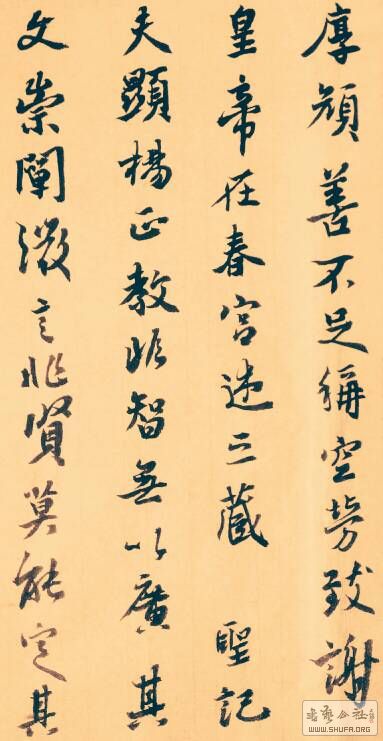 厚顔善不足稱空勞致謝
皇帝在春宮述三藏 聖記
夫顯楊正教非智無以廣其
文崇闡微言非賢莫能定其
书艺公社
WWW.SHUFA.ORG